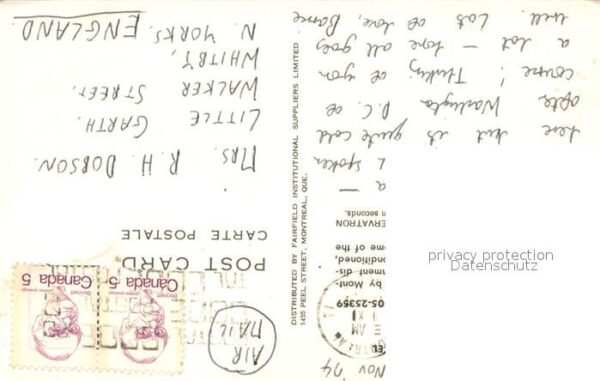 Nov '74
EL
05-25359
by Mont-
ment dis-
onditioned,
me of the
ERVATRON
n seconds.
a —
I spoken
here but it's quite cold
after Washington D.C. of
course! Thinking of you
a lot — hope all goes
well. Lots of love,
DISTRIBUTED BY FAIRFIELD INSTITUTIONAL SUPPLIERS LIMITED
1455 PEEL STREET, MONTREAL, QUE.
AIR
MAIL
Canada 5
Canada 5
POST CARD
CARTE POSTALE
MRS. R.H. DOBSON.
LITTLE GARTH.
WALKER STREET.
WHITBY,
N. YORKS.
ENGLAND
privacy protection
Datenschutz